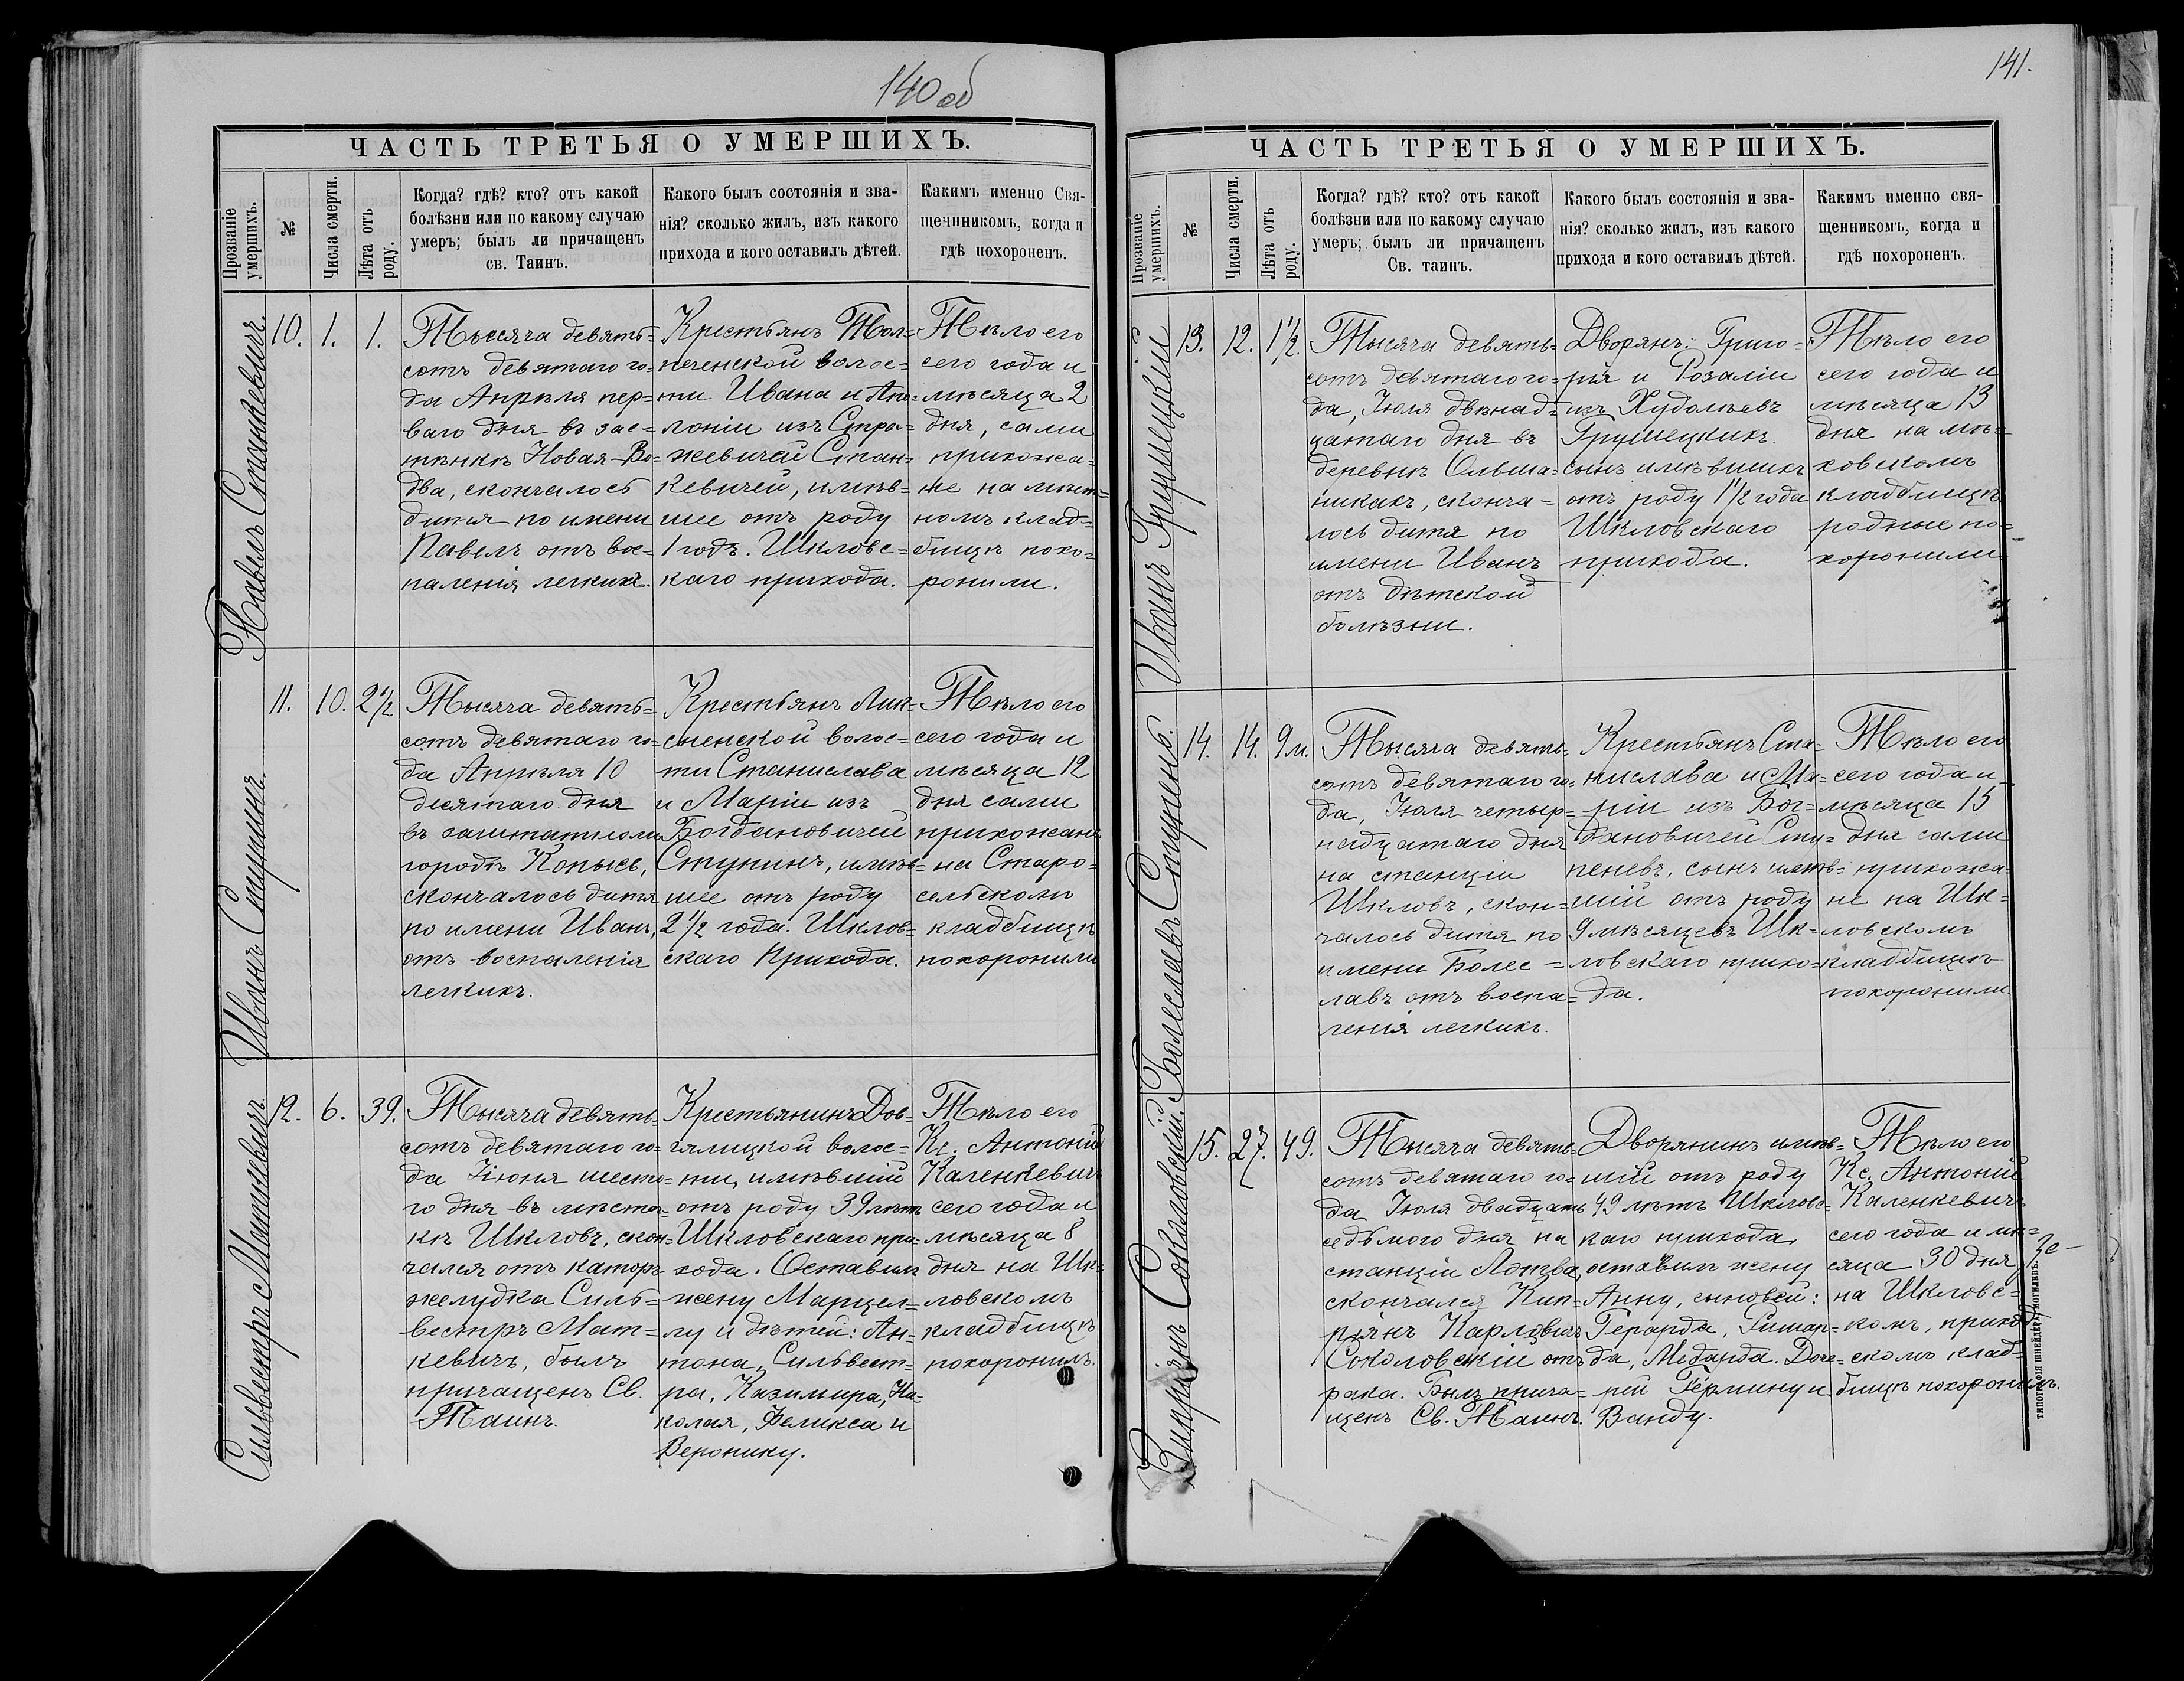 140 об
ЧАСТЬ ТРЕТЬЯ О УМЕРШИХЪ.
Прозваніе умершихъ.
№
Числа смерти.
Лѣта отъ роду.
Когда? гдѣ? кто? отъ какой
болѣзни или по какому случаю
умеръ; былъ ли причащенъ
св. Таинъ.
Какого былъ состоянія и зва-
нія? сколько жилъ, изъ какого
прихода и кого оставилъ дѣтей.
Какимъ именно Свя-
щенникомъ, когда и
гдѣ похороненъ.
Павелъ Станкевичъ
10.
1.
1.
Тысяча девять=
сотъ девятаго го-
да Апрѣля пер-
ваго дня въ зас-
тѣнкѣ Новая-Во-
два, скончалось
дитя по имени
Павелъ отъ вос-
паленія легкихъ.
Крестьянъ Тол-
печенской волос=
ти Ивана и Апо-
лоніи изъ Стра-
жевичей Стан=
кевичей, имѣв=
шее отъ роду
1 годъ. Шкловс=
каго прихода.
Тѣло его
сего года и
мѣсяца 2
дня, сами
прихожа=
не на мѣст=
номъ клад=
бищѣ похо=
ронили.
Иванъ Ступинъ
11.
10.
2½
Тысяча девять=
сотъ девятаго го-
да Апрѣля 10
десятаго дня
въ заштатномъ
городѣ Копысь,
скончалось дитя
по имени Иванъ,
отъ воспаленія
легкихъ.
Крестьянъ Лик-
сненской волос=
ти Станислава
и Маріи изъ
Богдановичей
Ступинъ, имѣв-
шее отъ роду
2½ года. Шклов=
скаго Прихода.
Тѣло его
сего года и
мѣсяца 12
дня сами
прихожане
на Старо=
сельскомъ
кладбищѣ
похоронили
Сильвестръ Маткевичъ
12.
6.
39.
Тысяча девять-
сотъ девятаго го-
да Іюня шесто=
го дня въ мѣстеч-
кѣ Шкловъ, скон=
чался отъ каторъ
желудка Силь=
вестръ Мат=
кевичъ, былъ
причащенъ Св.
Таинъ.
Крестьянинъ Дов-
ти, имѣвшій
отъ роду 39 лѣтъ
Шкловскаго при-
хода. Оставилъ
жену Марцел=
лу и дѣтей: Ан=
тона, Сильвест=
ра, Казимира, Ни-
колая, Феликса и
Веронику.
Тѣло его
Кс. Антоній
Каленкевичъ
сего года и
мѣсяца 8
дня на Шк-
ловскомъ
кладбищѣ
похоронилъ.
141.
ЧАСТЬ ТРЕТЬЯ О УМЕРШИХЪ.
Прозваніе умершихъ.
№
Числа смерти.
Лѣта отъ роду.
Когда? гдѣ? кто? отъ какой
болѣзни или по какому случаю
умеръ; былъ ли причащенъ
Св. таинъ.
Какого былъ состоянія и зва-
нія? сколько жилъ, изъ какого
прихода и кого оставилъ дѣтей.
Какимъ именно свя-
щенникомъ, когда и
гдѣ похороненъ.
Иванъ Грушецкій
13.
12.
1½.
Тысяча девять-
сотъ девятаго го-
да, Іюля двѣнад=
цатаго дня въ
деревнѣ Ольша=
никахъ, сконча=
лось дитя по
имени Иванъ
отъ дѣтской
болѣзни.
Дворянъ: Григо-
рія и Розаліи
изъ Худолѣевъ
Грушецкихъ
сынъ имѣвшихъ
отъ роду 1½ года
Шкловскаго
прихода.
Тѣло его
сего года и
мѣсяца 13
дня на мѣ=
ковскомъ
кладбищѣ
родные по=
хоронили
Болеславъ Ступень.
14.
14.
9 м.
Тысяча девять-
сотъ девятаго го-
да, Іюля четыр=
надцатаго дня
на станціи
Шкловъ, скон=
чалось дитя по
имени Болес=
лавъ отъ воспа=
ленія легкихъ.
Крестьянъ Ста-
нислава и Ма-
ріи изъ Бог=
дановичей Сту=
пеневъ, сынъ имѣв-
шій отъ роду
9 мѣсяцевъ Шк-
ловскаго прихо-
да.
Тѣло его
сего года и
мѣсяца 15
дня сами
прихожа-
не на Шк=
ловскомъ
кладбищѣ
похоронили.
Кипріянъ Соколовскій.
15.
27.
49.
Тысяча девять-
сотъ девятаго го-
да Іюля двадцать
седьмого дня на
станціи Лотва,
скончался Кип=
ріянъ Карловичъ
Соколовскій отъ
рака. Былъ прича=
щенъ Св. Таинъ.
Дворянинъ имѣв=
шій отъ роду
49 лѣтъ Шкловс=
каго прихода,
оставилъ жену
Анну, сыновей:
Герарда, Ришар=
да, Медарда. Доче=
рій Гермину и
Ванду.
Тѣло его
Кс. Антоній
Каленкевичъ
сего года и мѣ=
сяца 30 дня
на Шкловс=
комъ, приход
скомъ клад=
бищѣ похоронилъ.
ТИПОГРАФІЯ ШНЕЙДЕРА, МОГИЛЕВЪ.